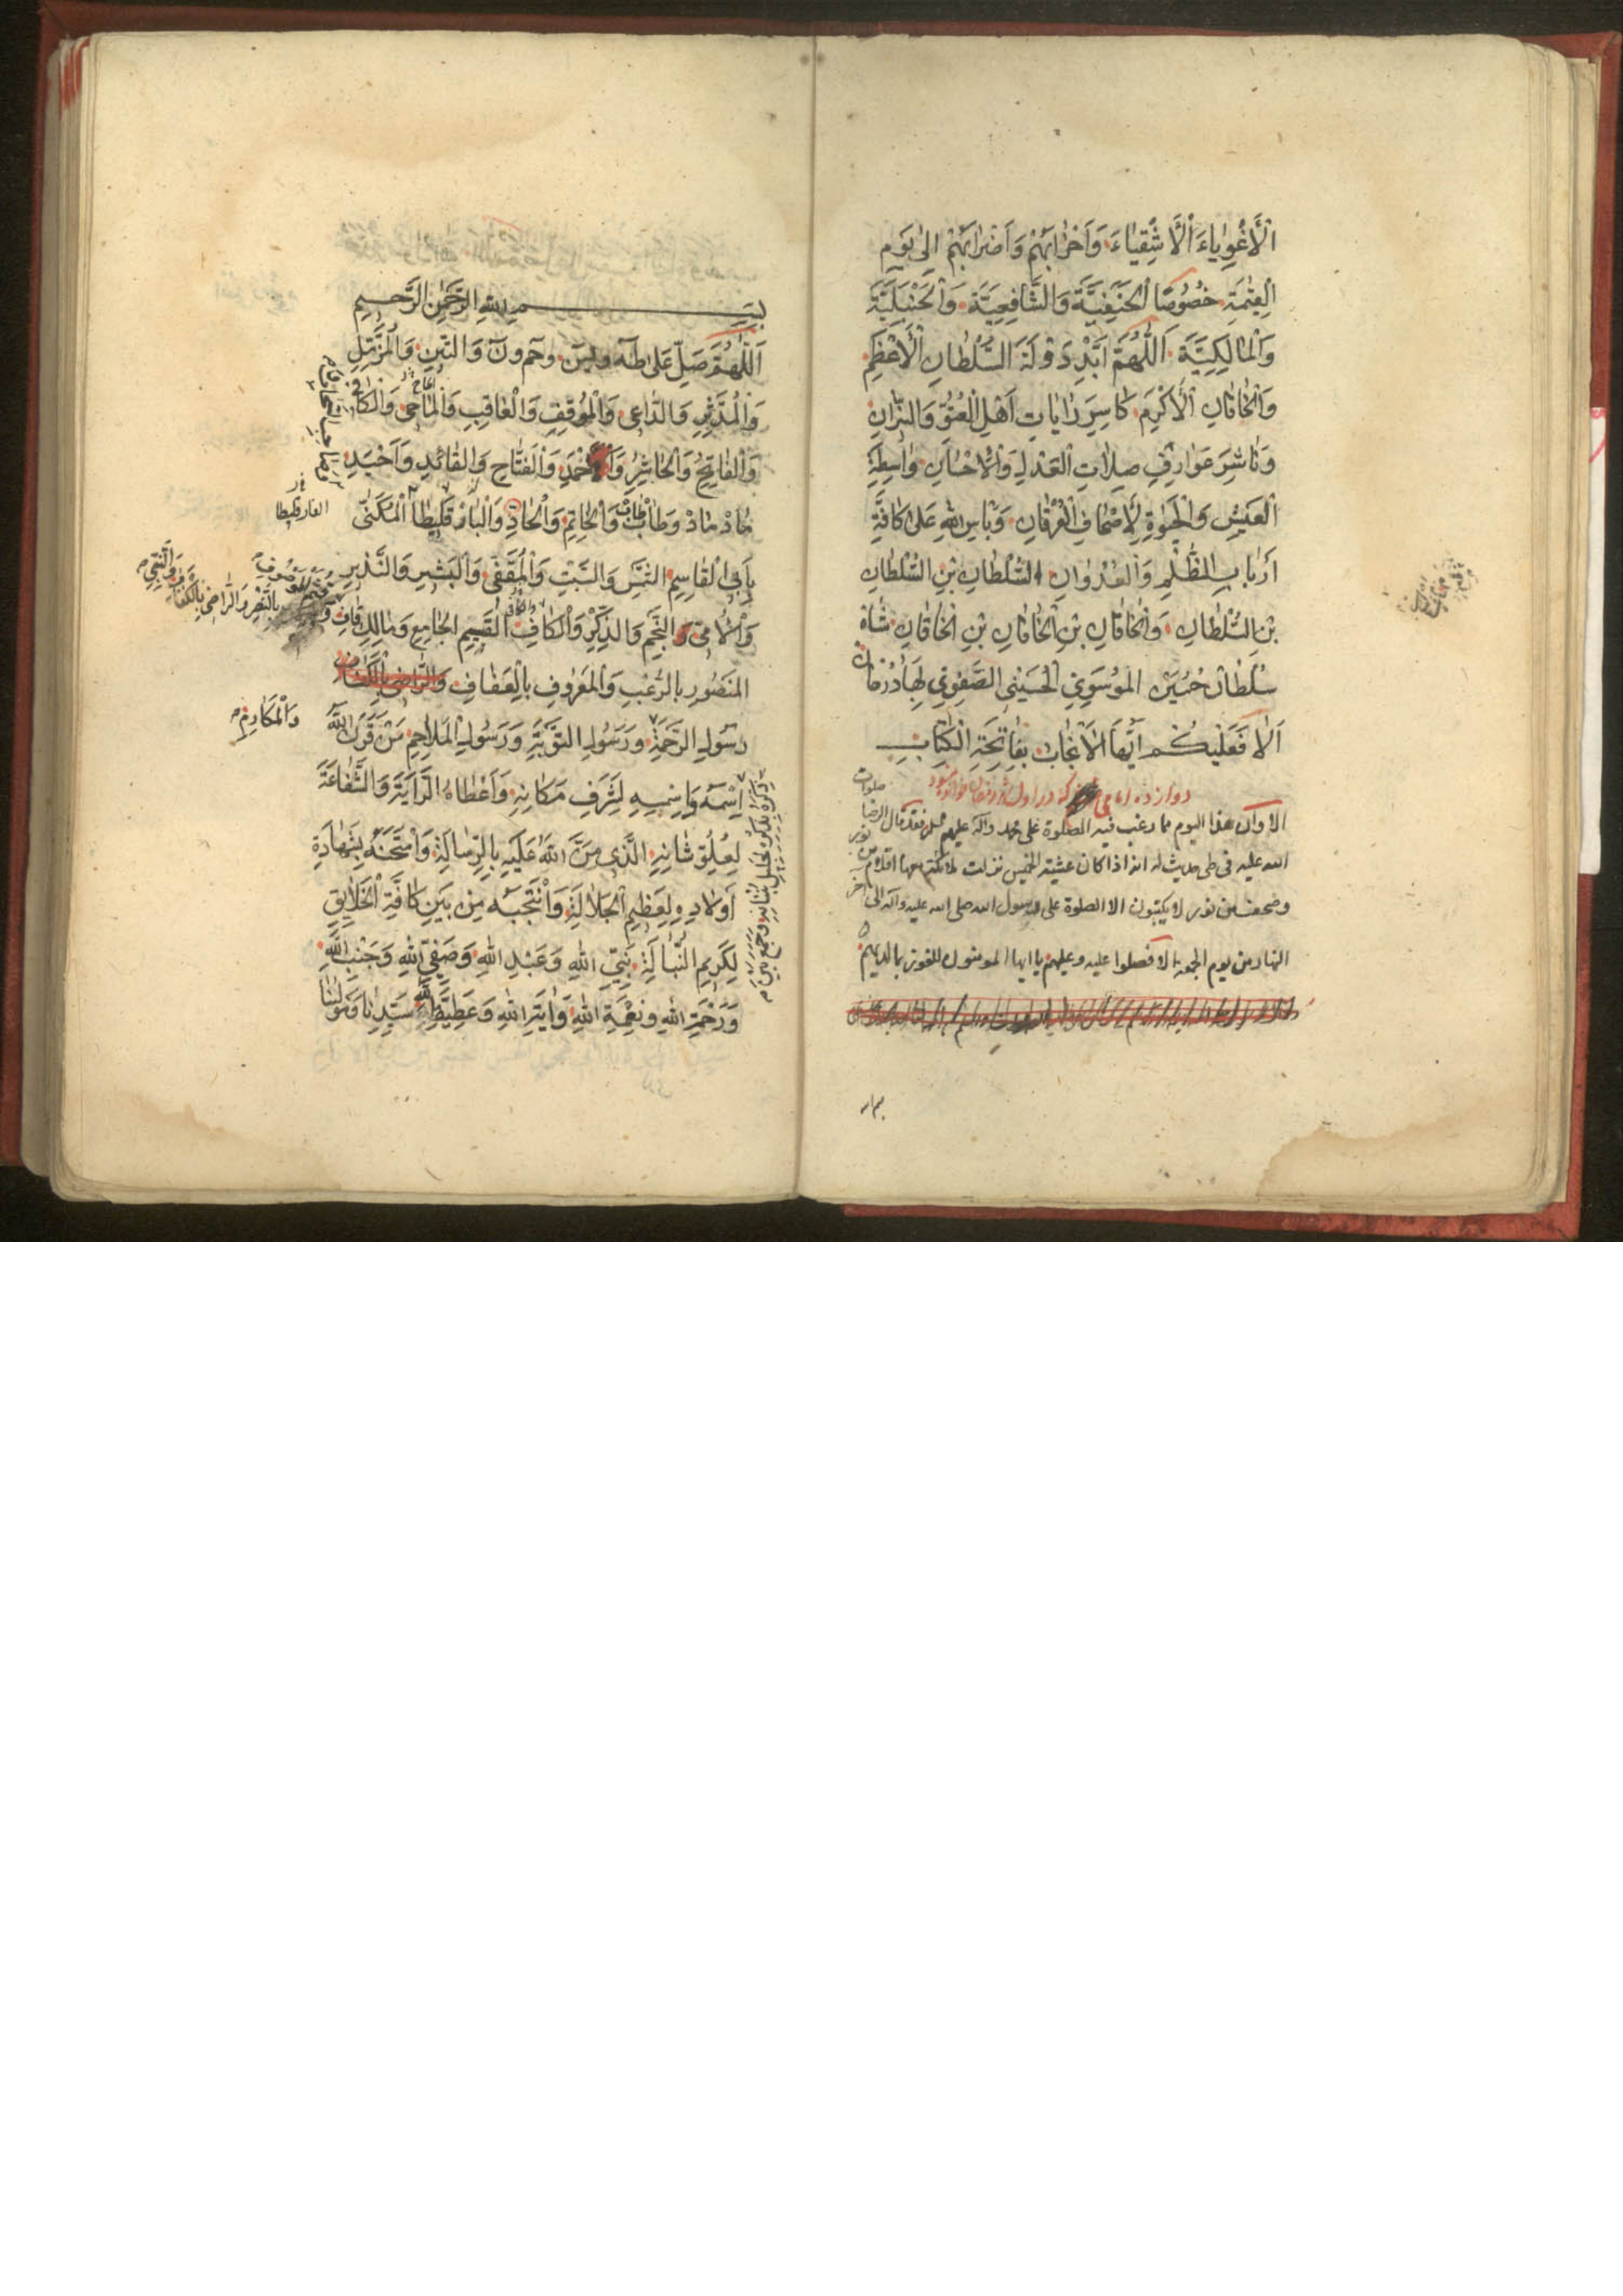 الْأَغْوِيَاءَ الْأَشْقِيَاءَ وَأَحْزَابَهُمْ وَأَضْرَابَهُمْ إِلَى يَوْمِ
الْقِيٰمَةِ خُصُوصًا الْحَنَفِيَّةَ وَالشَّافِعِيَّةَ وَالْحَنْبَلِيَّةَ
وَالْمَالِكِيَّةَ اَللّٰهُمَّ أَيِّدْ دَوْلَةَ السُّلْطَانِ الْأَعْظَمِ
وَالْخَاقَانِ الْأَكْرَمِ كَاسِرِ رَايَاتِ أَهْلِ الْعُتُوِّ
وَنَاشِرِ عَوَارِفِ صِلَاتِ الْعَدْلِ وَالْإِحْسَانِ وَاسِطَةِ
الْعَيْشِ وَالْحَيٰوةِ لِأَصْحَافِ الْعُرْفَانِ وَبَأْسِ اللهِ عَلَى كَافَّةِ
أَرْبَابِ الظُّلْمِ وَالْعُدْوَانِ السُّلْطَانِ بْنِ السُّلْطَانِ
بْنِ السُّلْطَانِ وَالْخَاقَانِ بْنِ الْخَاقَانِ بْنِ الْخَاقَانِ شَاهْ
سُلْطَان حُسَيْن الْمُوسَوِيِّ الْحُسَيْنِيِّ الصَّفَوِيِّ بَهَادُرْخَان
أَلَا فَعَلَيْكُمْ أَيُّهَا الْأَنْجَابُ بِفَاتِحَةِ الْكِتَابِ
دوازده امامی که در اول
الا وان هذا اليوم مما رغب فيه الصلوة على محمد وآله عليهم فقد قال الرضا صلوات
الله عليه فى طى حديث له انه اذا كان عشية الخميس نزلت ملائكة معها اقلام من نور
وصحف من نور لا يكتبون الا الصلوة على رسول الله صلى الله عليه وآله الى آخر
النهار من يوم الجمعة الا فصلوا عليه وعليهم يا ايها المومنون للفوز بما لديهم
بِسْمِ اللهِ الرَّحْمٰنِ الرَّحِيمِ
اَللّٰهُمَّ صَلِّ عَلَى طٰهٰ وَيٰسٓ وَحٰمٓ وَنٓ وَالتِّينِ وَالْمُزَّمِّلِ
وَالْمُدَّثِّرِ وَالدَّاعِي وَالْمُوقِفِ وَالْعَاقِبِ وَالْمَاحِي وَالْكَافِي
وَالْفَاتِحِ وَالْحَاشِرِ وَالْأَحْمَدِ وَالْفَتَّاحِ وَالْقَائِدِ وَأُحَيْدِ
مَادْ مَادْ وَطَابْ طَابْ وَالْخَاتِمِ وَالْحَادِ وَالْبَارْقَلِيطَا الْمُكَنّٰى
الفارقليطا
بِأَبِي الْقَاسِمِ الشَّمْسِ وَالسَّبْتِ وَالْمُقَفّٰى وَالْبَشِيرِ وَالنَّذِيرِ
وَالْأُمِّيِّ وَالنَّجْمِ وَالذِّكْرِ وَالْكَافِ الْقَسِيمِ الْجَامِعِ وَمَالِكِ قَافِ
الْمَنْصُورِ بِالرُّعْبِ وَالْمَعْرُوفِ بِالْعَفَافِ وَالرَّاضِي بِالْكَفَافِ
رَسُولِ الرَّحْمَةِ وَرَسُولِ التَّوْبَةِ وَرَسُولِ الْمَلَاحِمِ مَنْ قَرَنَ اللهُ
وَالْمَكَارِمِ
اِسْمَهُ وَاِسْمِهِ لِشَرَفِ مَكَانِهِ وَأَعْطَاهُ الرَّايَةَ وَالشَّفَاعَةَ
لِعُلُوِّ شَانِهِ الَّذِي مَنَّ اللهُ عَلَيْهِ بِالرِّسَالَةِ وَامْتَحَنَهُ بِشَهَادَةِ
أَوْلَادِهِ لِعَظِيمِ الْجَلَالَةِ وَانْتَجَبَهُ مِنْ بَيْنِ كَافَّةِ الْخَلَايِقِ
لِكَرِيمِ النَّبَالَةِ نَبِيِّ اللهِ وَعَبْدِ اللهِ وَصَفِيِّ اللهِ وَجَنْبِ اللهِ
وَرَحْمَةِ اللهِ وَنِعْمَةِ اللهِ وَآيَةِ اللهِ وَعَطِيَّةِ اللهِ سَيِّدِنَا وَمَوْلٰينَا